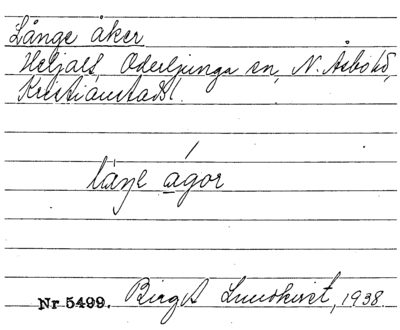 Långe åker
Heljalt, Oderljunga sn, N. Åsbo hd,
Kristianstads l.
låŋe ągor
Nr 5499. Birgit Lundkvist, 1938.